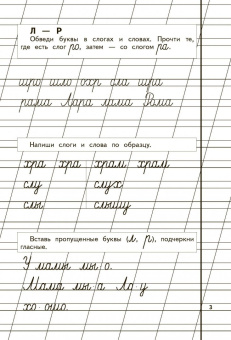 Л — Р
Обведи буквы в слогах и словах. Прочти те,
где есть слог ро, затем — со слогом ра.
рама Лара лама Рома
Напиши слоги и слова по образцу.
хра хра храм храм
слу слух
слы слышу
Вставь пропущенные буквы (л, р), подчеркни
гласные.
У мамы мы о.
Мама мы а Ло у
хо ошо.
3